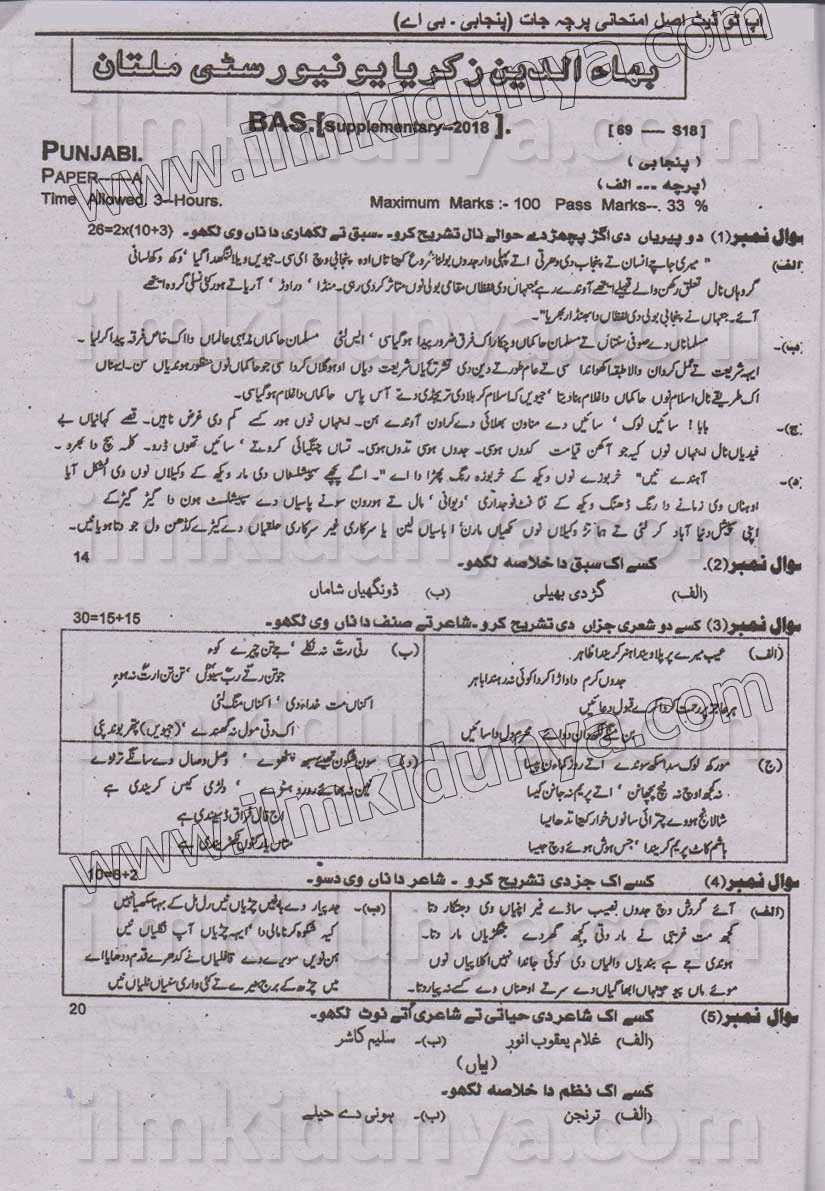 اپ ٹو ڈیٹ اصل امتحانی پرچہ جات (پنجابی ۔ بی اے)
بہاء الدین زکریا یونیورسٹی ملتان
BAS.[Supplementary--2018 ].
[ 69 ---- S18]
PUNJABI.
(پنجابی)
PAPER----A
(پرچہ --- الف)
Time Allowed. 3--Hours.
Maximum Marks :- 100 Pass Marks--. 33 %
سوال نمبر(1) دو پیریاں دی اگڑ پچھڑ دے حوالے نال تشریح کرو۔ سبق تے لکھاری دا ناں وی لکھو۔ 26=2x(10+3)
(الف) " میری جاچے انسان نے پنجاب دی دھرتی اتے پہلی وار جدوں بولنا شروع کیتا تاں اوہ پنجابی وچ ای سی۔ جیویں ویلا لنگھدا گیا ' وکھ وکھ لسانی
گروہاں نال تعلق رکھن والے قبیلے ایتھے آوندے رہے جنہاں دی لفظاں مقامی بولی نوں متاثر کردی رہی۔ منڈا ' دراوڑ ' آریا تے ہور کئی نسلی گروہ ایتھے
آئے۔ جنہاں نے پنجابی بولی دی لفظاں دا بھنڈار بھریا"۔
(ب)۔ مسلماناں دے صوفی سنتاں تے مسلمان حاکماں وچکار اک فرق ضرور پیدا ہو گیا سی ' ایس لئی مسلمان حاکماں مذہبی عالماں دا اک خاص فرقہ پیدا کر لیا۔
ایہہ شریعت تے عمل کروان والا طبقہ اکھواندا سی تے عام طور تے دین دی تشریح یاں شریعت دیاں اوہ گلاں کردا سی جو حاکماں نوں منظور ہوندیاں سن۔ ایہناں
اک طریقے نال اسلام نوں حاکماں دا غلام بنا دیتا ' جیویں کہ اسلام کربلا دی تریجڈی دے آس پاس حاکماں دا غلام ہو گیا سی۔
(ج)۔ بابا! سائیں لوک ' سائیں دے مناون بھلائی دے کراون آوندے ہن۔ اینہاں نوں ہور کسے کم دی غرض ناہیں۔ قصے کہانیاں بے
فیدیاں نال اینہاں نوں کیہ جو آکھن قیامت کدوں ہوسی۔ جدوں ہوسی تدوں ہوسی۔ تساں چنگیائی کرو تے ' سائیں تھوں ڈرو۔ کلمہ سچ دا بھرو۔
(د)۔ آہندے نیں" خربوزے نوں ویکھ کے خربوزہ رنگ پھڑدا اے"۔ اگے پچھے سپیشلسٹاں دی مار ویکھ کے وکیلاں نوں وی اٹکل آیا
اوہناں وی زمانے دا رنگ ڈھنگ ویکھ کے فٹافٹ فوجداری ' دیوانی ' مال تے ہورون سونے پاسیاں دے سپیشلسٹ ہون دا گیڑ گیڑ کے
اپنی سپیشل دنیا آباد کر لئی تے ماتڑ وکیلاں نوں مکھیاں مارن ' اباسیاں لین یا سرکاری غیر سرکاری حلقیاں دے کیڑے کڈھن ول جو دتا ہویا نیں۔
سوال نمبر(2). کسے اک سبق دا خلاصہ لکھو۔ 14
(الف) گڑ دی بھیلی (ب) ڈونگھیاں شاماں
سوال نمبر(3) کسے دو شعری جزاں دی تشریح کرو۔ شاعر تے صنف دا ناں وی لکھو۔ 30=15+15
(الف) عیب میرے پر پلا دیندا ہنر کریندا ظاہر
جدوں کرم دا واڑا کردا کوئی نہ رہندا باہر
ہر عاجز پر رحمت کردا کرے قبول دعائیں
ہن
(ب) رتی رت نہ نکلے ' جے تن چیرے کوء
جو تن رتے رب سیوں ' تن تن رت نہ ہوء
اکناں مت خداء دی ' اکناں منگ لئی
اک دتی مول نہ گھندے ' (جیویں) پتھر بوند پئی
(ج) مورکھ لوک سدا سکھ سوندے اتے روز کماون پیسا
نہ کجھ اوچ نہ نیچ پچھانن ' اتے پریم نہ جانن کیسا
شالا نج ہووے چترائی سانوں خوار کیتا تدھ ایسا
ہاشم کاٹ پریم کریندا ' جس ہوش ہووے وچ جیسا
(د) سون شگون تھیے سبھ پٹھڑے ' وصل وصال دے سانگے ترٹڑے
نین نہ بھائے رو رو ہٹڑے ' دلڑی کیس کریندی ہے
اج فال فراق ڈسیندی ہے
سوال نمبر(4) کسے اک جز دی تشریح کرو ۔ شاعر دا ناں وی دسو۔ 10=8+2
(الف) آئے گردش وچ جدوں نصیب ساڈے غیر اپنیاں وی دھتکار دتا
کجھ مت غریبی نے مار دتی کجھ گھر دے جھگڑیاں مار دتا۔
ہوندی جے ہے بندیاں والیاں دی کوئی جاندا نہیں اکلاپیاں نوں
موئے ماں پیو جیہناں ابھاگیاں دے سر تے اوہناں دے کسے نہ پیار دتا۔
(ب)۔ جد پیار دے ہاٹھیں چڑیاں نیں رل مل کے بہنا سکھیا نئیں
کیہ شکوہ کرنا مالی دا ' ایہہ چڑیاں آپ نکلیاں نیں
ہن نویں سویرے دے قافلیاں نے کدھرے قدم ودھایا اے
میں چڑھ کے برج منیرے تے کئی واری سنیاں ٹلیاں نیں
سوال نمبر(5) کسے اک شاعر دی حیاتی تے شاعری اُتے نوٹ لکھو۔ 20
(الف) غلام یعقوب انور (ب)۔ سلیم کاشر
(یاں)
کسے اک نظم دا خلاصہ لکھو۔
(الف) ترنجن (ب)۔ ہونی دے حیلے
www.ilmkidunya.com
www.ilmkidunya.com
ilmkidunya.com